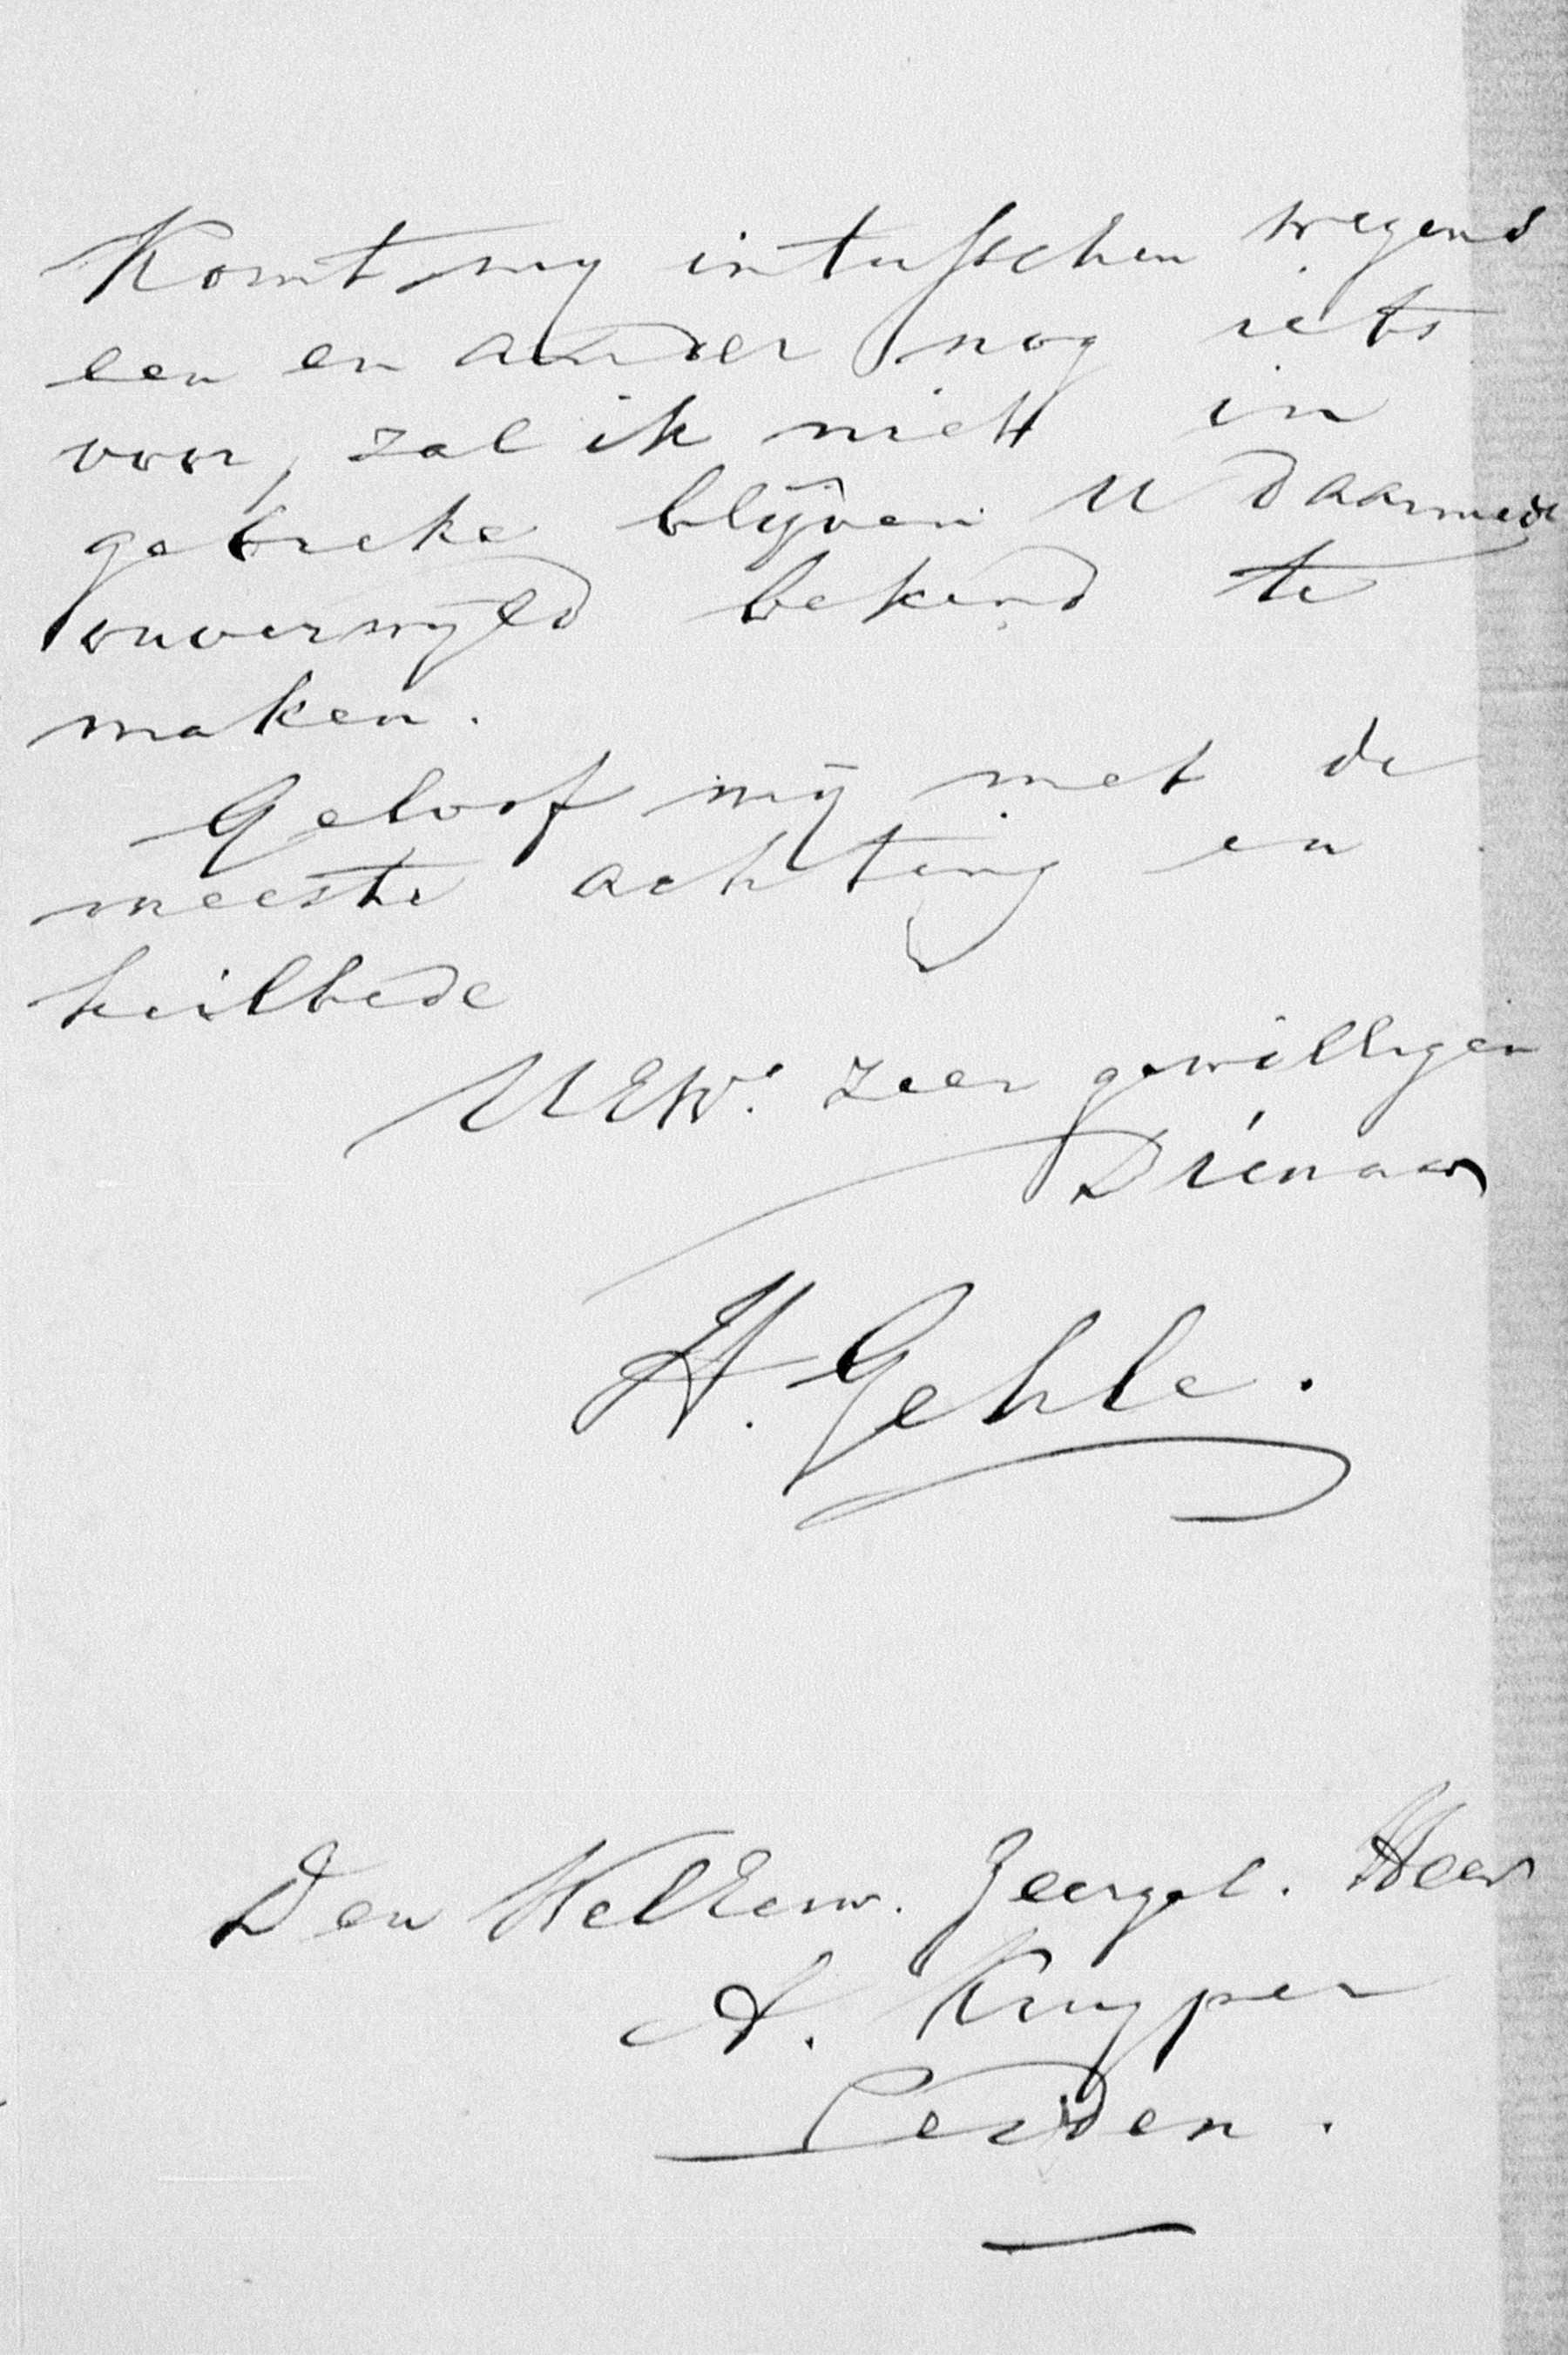 Komt my intusschen wegens
een en ander nog iets
voor, zal ik niet in
gebreke blijven U daarmede
onverwyld bekend te
maken.
Geloof mij met de
meeste achting en
heilbede
UEW. zeer gewilligen
Dienaar
H. Gehle.
Den WelEerw. Zeergel. Heer
A. Kuyper
Leiden.